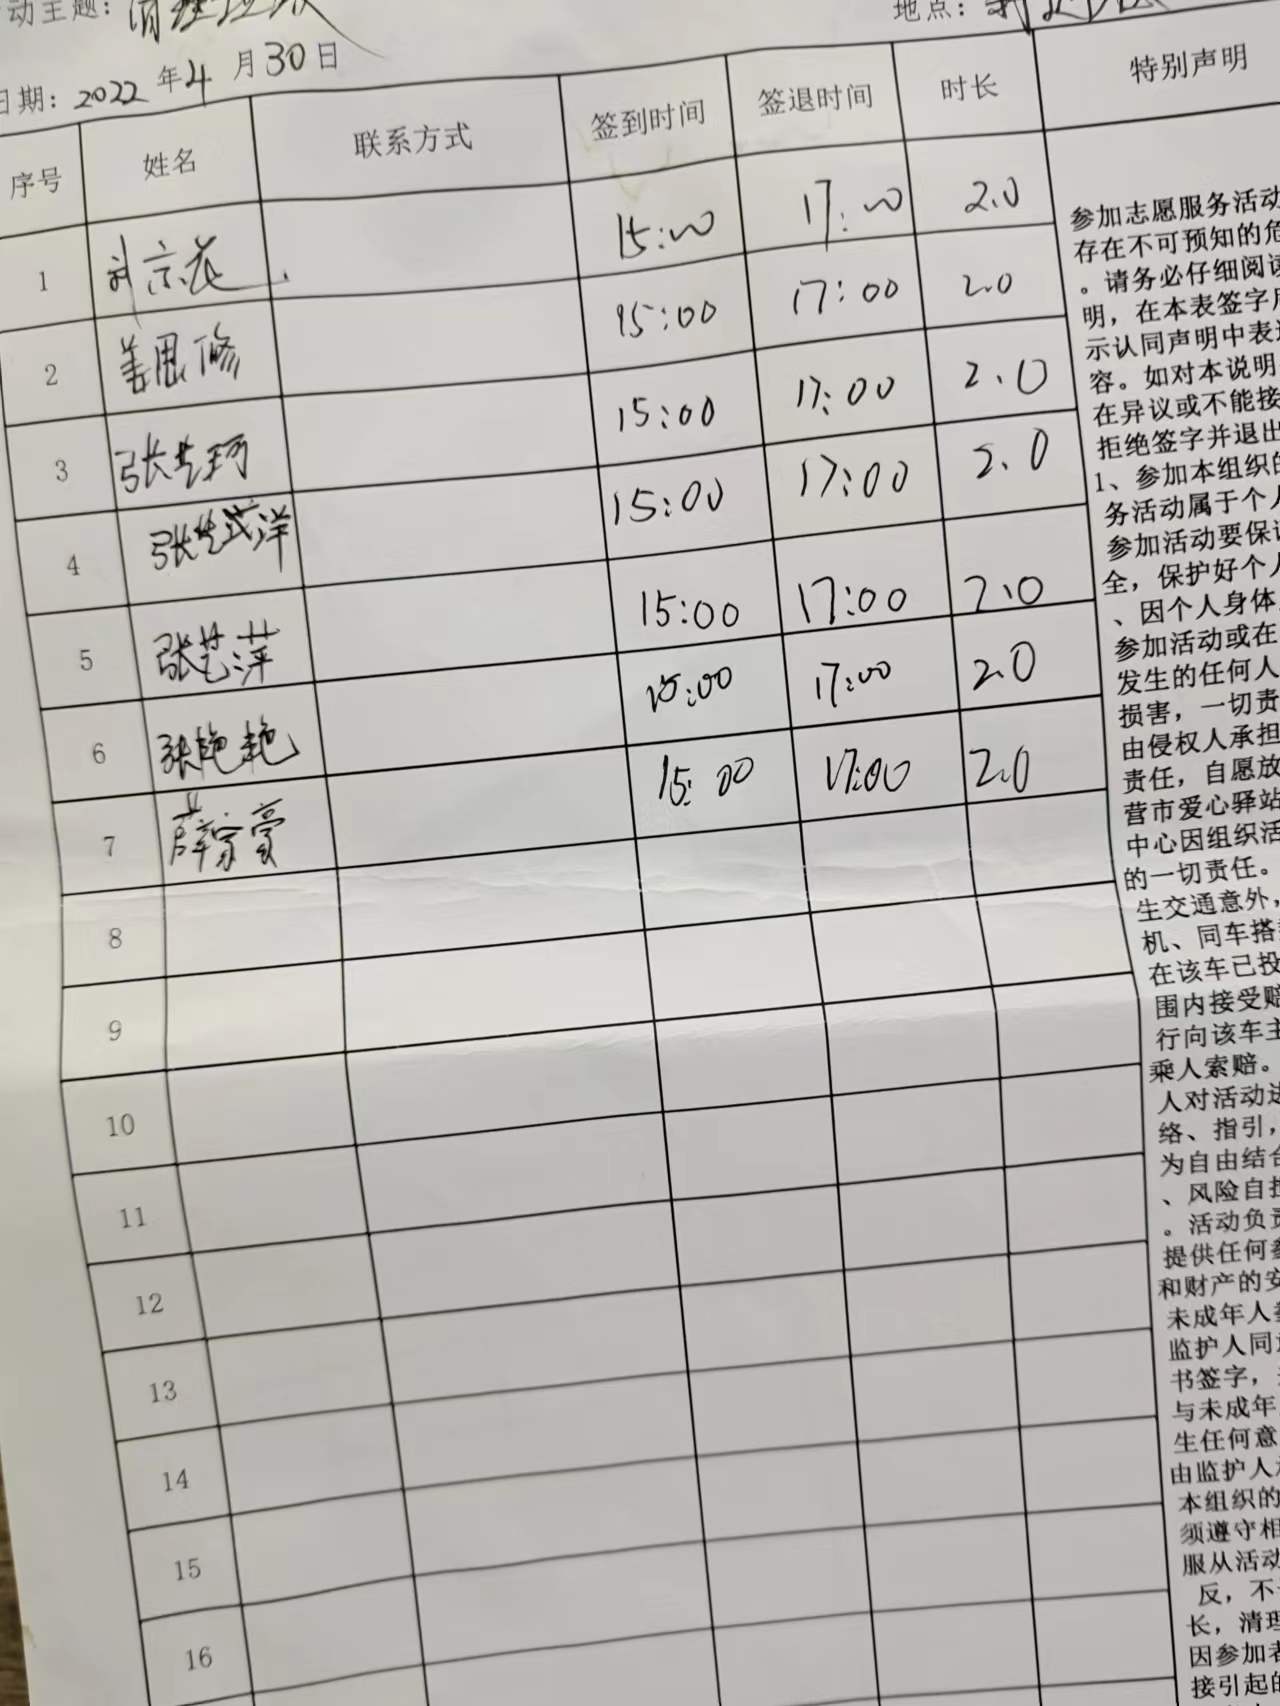 动主题：清理垃圾
地点：
日期：2022年4月30日
序号 姓名 联系方式 签到时间 签退时间 时长 特别声明
1 15:00 17:00 2.0
2 姜思修 15:00 17:00 2.0
3 张艺珂 15:00 17:00 2.0
4 15:00 17:00 2.0
5 张艺萍 15:00 17:00 2.0
6 张艳艳 15:00 17:00 2.0
7 薛家豪 15:00 17:00 2.0
8
9
10
11
12
13
14
15
16
参加志愿服务活动
存在不可预知的危
。请务必仔细阅读
明，在本表签字后
示认同声明中表达
容。如对本说明
在异议或不能接
拒绝签字并退出
1、参加本组织的
务活动属于个人
参加活动要保证
全，保护好个人
、因个人身体
参加活动或在
发生的任何人
损害，一切责
由侵权人承担
责任，自愿放
营市爱心驿站
中心因组织活
的一切责任。
生交通意外，
机、同车搭
在该车已投
围内接受赔
行向该车主
乘人索赔。
人对活动进
络、指引，
为自由结合
、风险自担
。活动负责
提供任何参
和财产的安
未成年人参
监护人同意
书签字，
与未成年
生任何意
由监护人承
本组织的
须遵守相
服从活动
反，不
长，清理
因参加者
接引起的